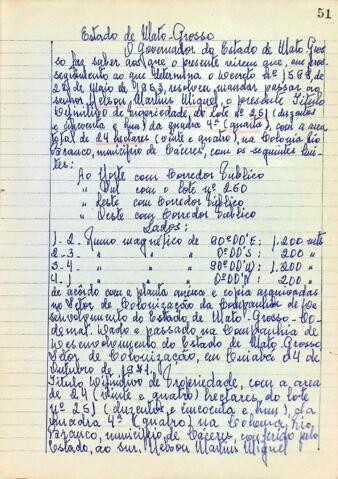 51
Estado de Mato-Grosso
O Governador do Estado de Mato Gros
so faz saber aos que o presente virem que, em pros
seguimento ao que determina o Decreto nº 568, de
de Maio de 1963, resolveu mandar passar ao
senhor Nelson Martins Miguel, o presente Titulo
Definitivo de Propriedade, do lote nº 251 (duzentos
e cincoenta e hum) da quadra 4ª (quarta), com a area
total de 24 hectares (vinte e quatro), na Colonia Rio
Branco, município de Cáceres, com os seguintes limi
tes:
Ao Norte com Corredor Publico
" Sul com o lote nº 260
" Leste com Corredor Publico
" Oeste com Corredor Publico
Lados:
1-2- Rumo magnético de 90º00'E; 1.200 mts
2-3- " " " 0º00'S; 200 "
3-4- " " " 90º00'W; 1.200 "
4-1- " " " 0º00'N; 200 "
de acôrdo com a planta anexa e copia arquivadas
no Setor de Colonização da Companhia de De
senvolvimento do Estado de Mato-Grosso - Co
demat. Dado e passado na Companhia de
Desenvolvimento do Estado de Mato-Grosso
Setor de Colonização, em Cuiabá 04 de
Outubro de 1971.
Titulo Definitivo de Propriedade, com a area
de 24 (vinte e quatro) hectares, do lote
nº 251 (duzentos e cincoenta e hum), da
quadra 4ª (quatro) na Colonia Rio
Branco, município de Cáceres, conferido pelo
Estado, ao snr. Nelson Martins Miguel